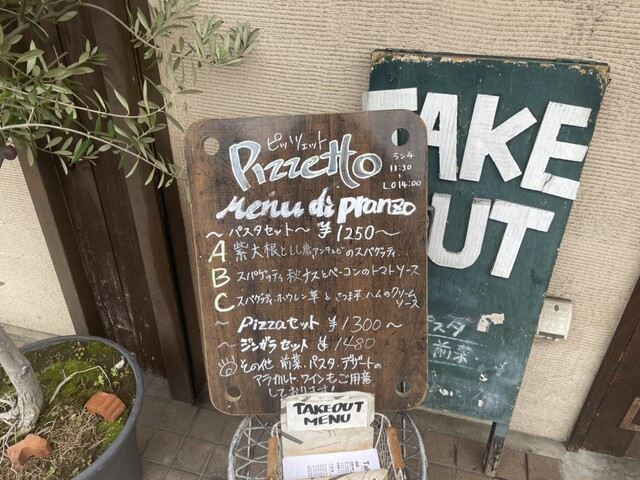 ピッツェット
Pizzetto
ランチ
11:30
L.O 14:00
Menu di pranzo
〜パスタセット〜 ¥1250〜
A 紫大根としし唐アンチョビのスパゲッティ
B スパゲッティ 秋ナスとベーコンのトマトソース
C スパゲッティ ホウレン草とさつま芋、ハムのクリーム
ソース
〜Pizzaセット ¥1300〜
〜ジンガラセット ¥1480
その他、前菜、パスタ、デザートの
アラカルト、ワインもご用意
しております
TAKEOUT
MENU
TAKE
OUT
パスタ
前菜